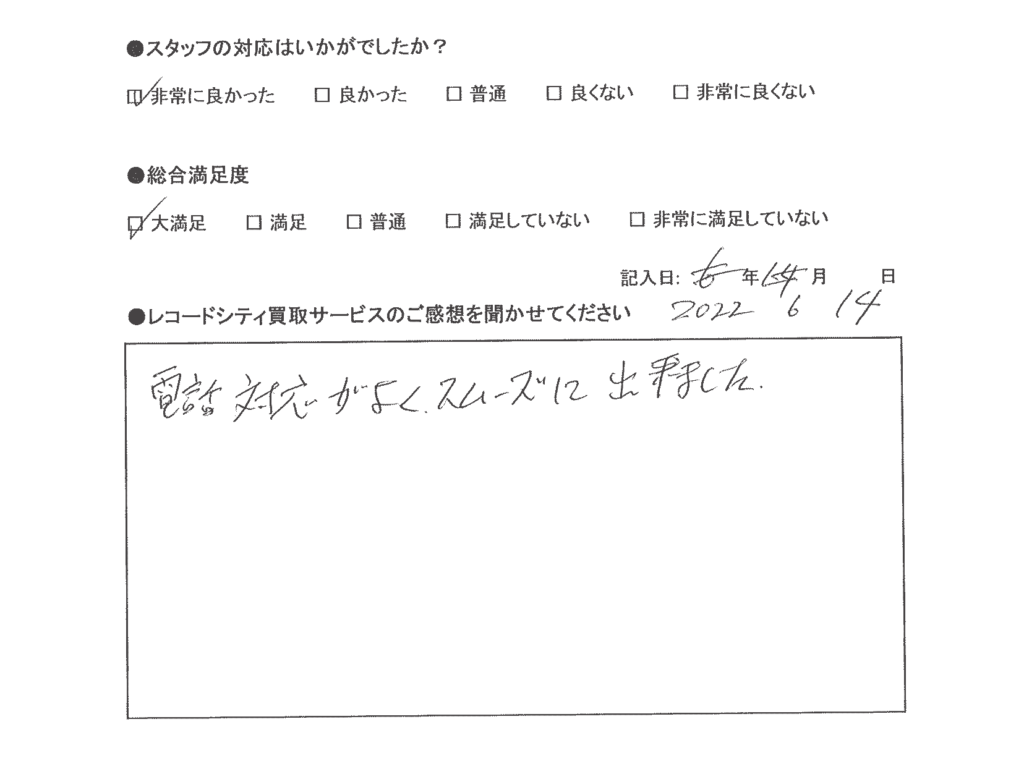 ●スタッフの対応はいかがでしたか?
☑非常に良かった □ 良かった □ 普通 □ 良くない □ 非常に良くない
●総合満足度
☑大満足 □ 満足 □ 普通 □ 満足していない □ 非常に満足していない
記入日: 6 年 14 月 日
●レコードシティ買取サービスのご感想を聞かせてください 2022 6 14
電話対応がよく、スムーズに出来ました。